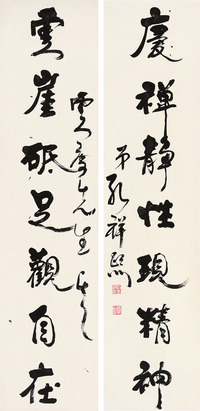 慶禪靜性現精神
弟孔祥熙
雲先生
雲崖砥足觀自在